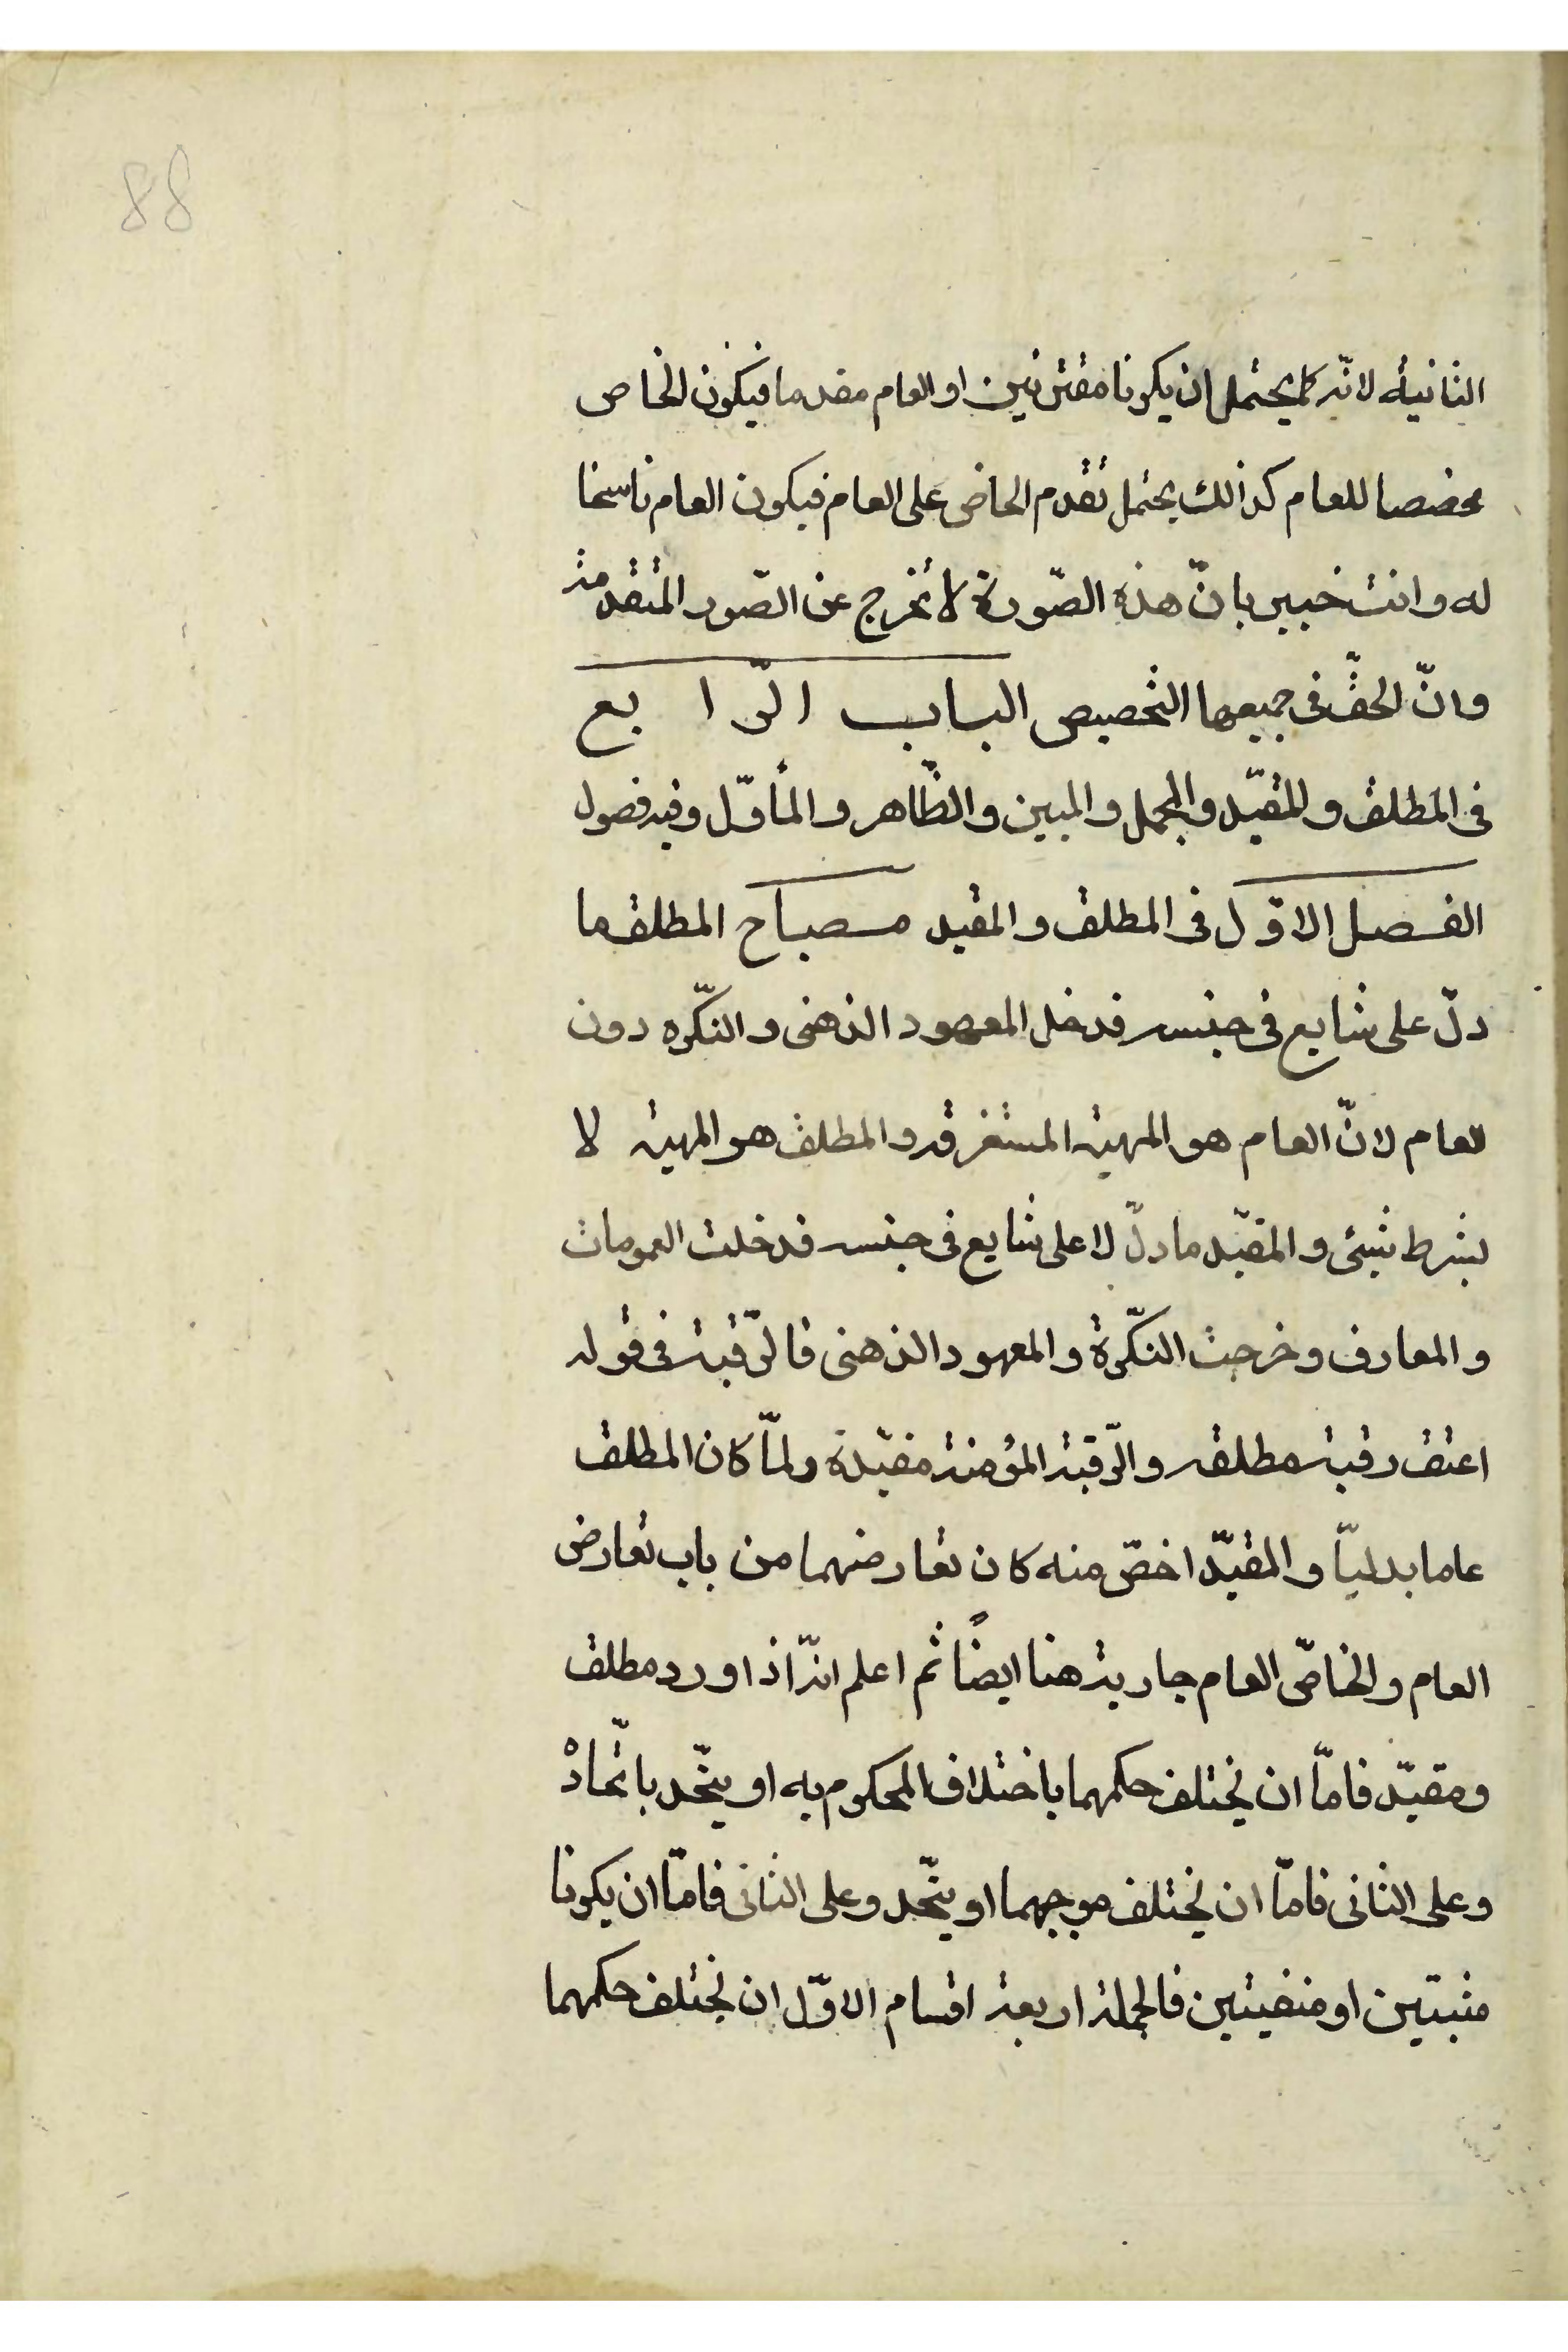 88
الثانية لانّه كما يحتمل ان يكونا مقترنين او العام مقدما فيكون الخاص
مخصصا للعام كذالك يحتمل تقدم الخاص على العام فيكون العام ناسخا
له وانت خبير بانّ هذه الصّورة لا تخرج عن الصّور المتقدمة
وانّ الحقّ فى جميعها التخصيص الباب الرّابع
فى المطلق والمقيّد والمجمل والمبين والظّاهر والمأوّل وفيه فصول
الفصل الاوّل فى المطلق والمقيد مصباح المطلق ما
دلّ على شايع فى جنسه فدخل المعهود الذهنى والنكّره دون
العام لانّ العام هو المهية المستغرقه والمطلق هو المهية لا
بشرط شيئ والمقيّد ما دلّ لا على شايع فى جنسه فدخلت العمومات
والمعارف وخرجت النكّرة والمعهود الذهنى فالرّقبة فى قوله
اعتق رقبة مطلقه والرّقبة المؤمنة مقيّدة ولمّا كان المطلق
عاما بدليّا والمقيّد اخصّ منه كان تعارضهما من باب تعارض
العام والخاصّ العام جارية هنا ايضًا ثم اعلم انّه اذا ورد مطلق
ومقيّد فامّا ان يختلف حكمهما باختلاف المحكوم به او يتّحد باتّحاده
وعلى الثانى فامّا ان يختلف موجبهما او يتّحد وعلى الثانى فامّا ان يكونا
مثبتين او منفيتين فالجملة اربعة اقسام الاوّل ان يختلف حكمهما